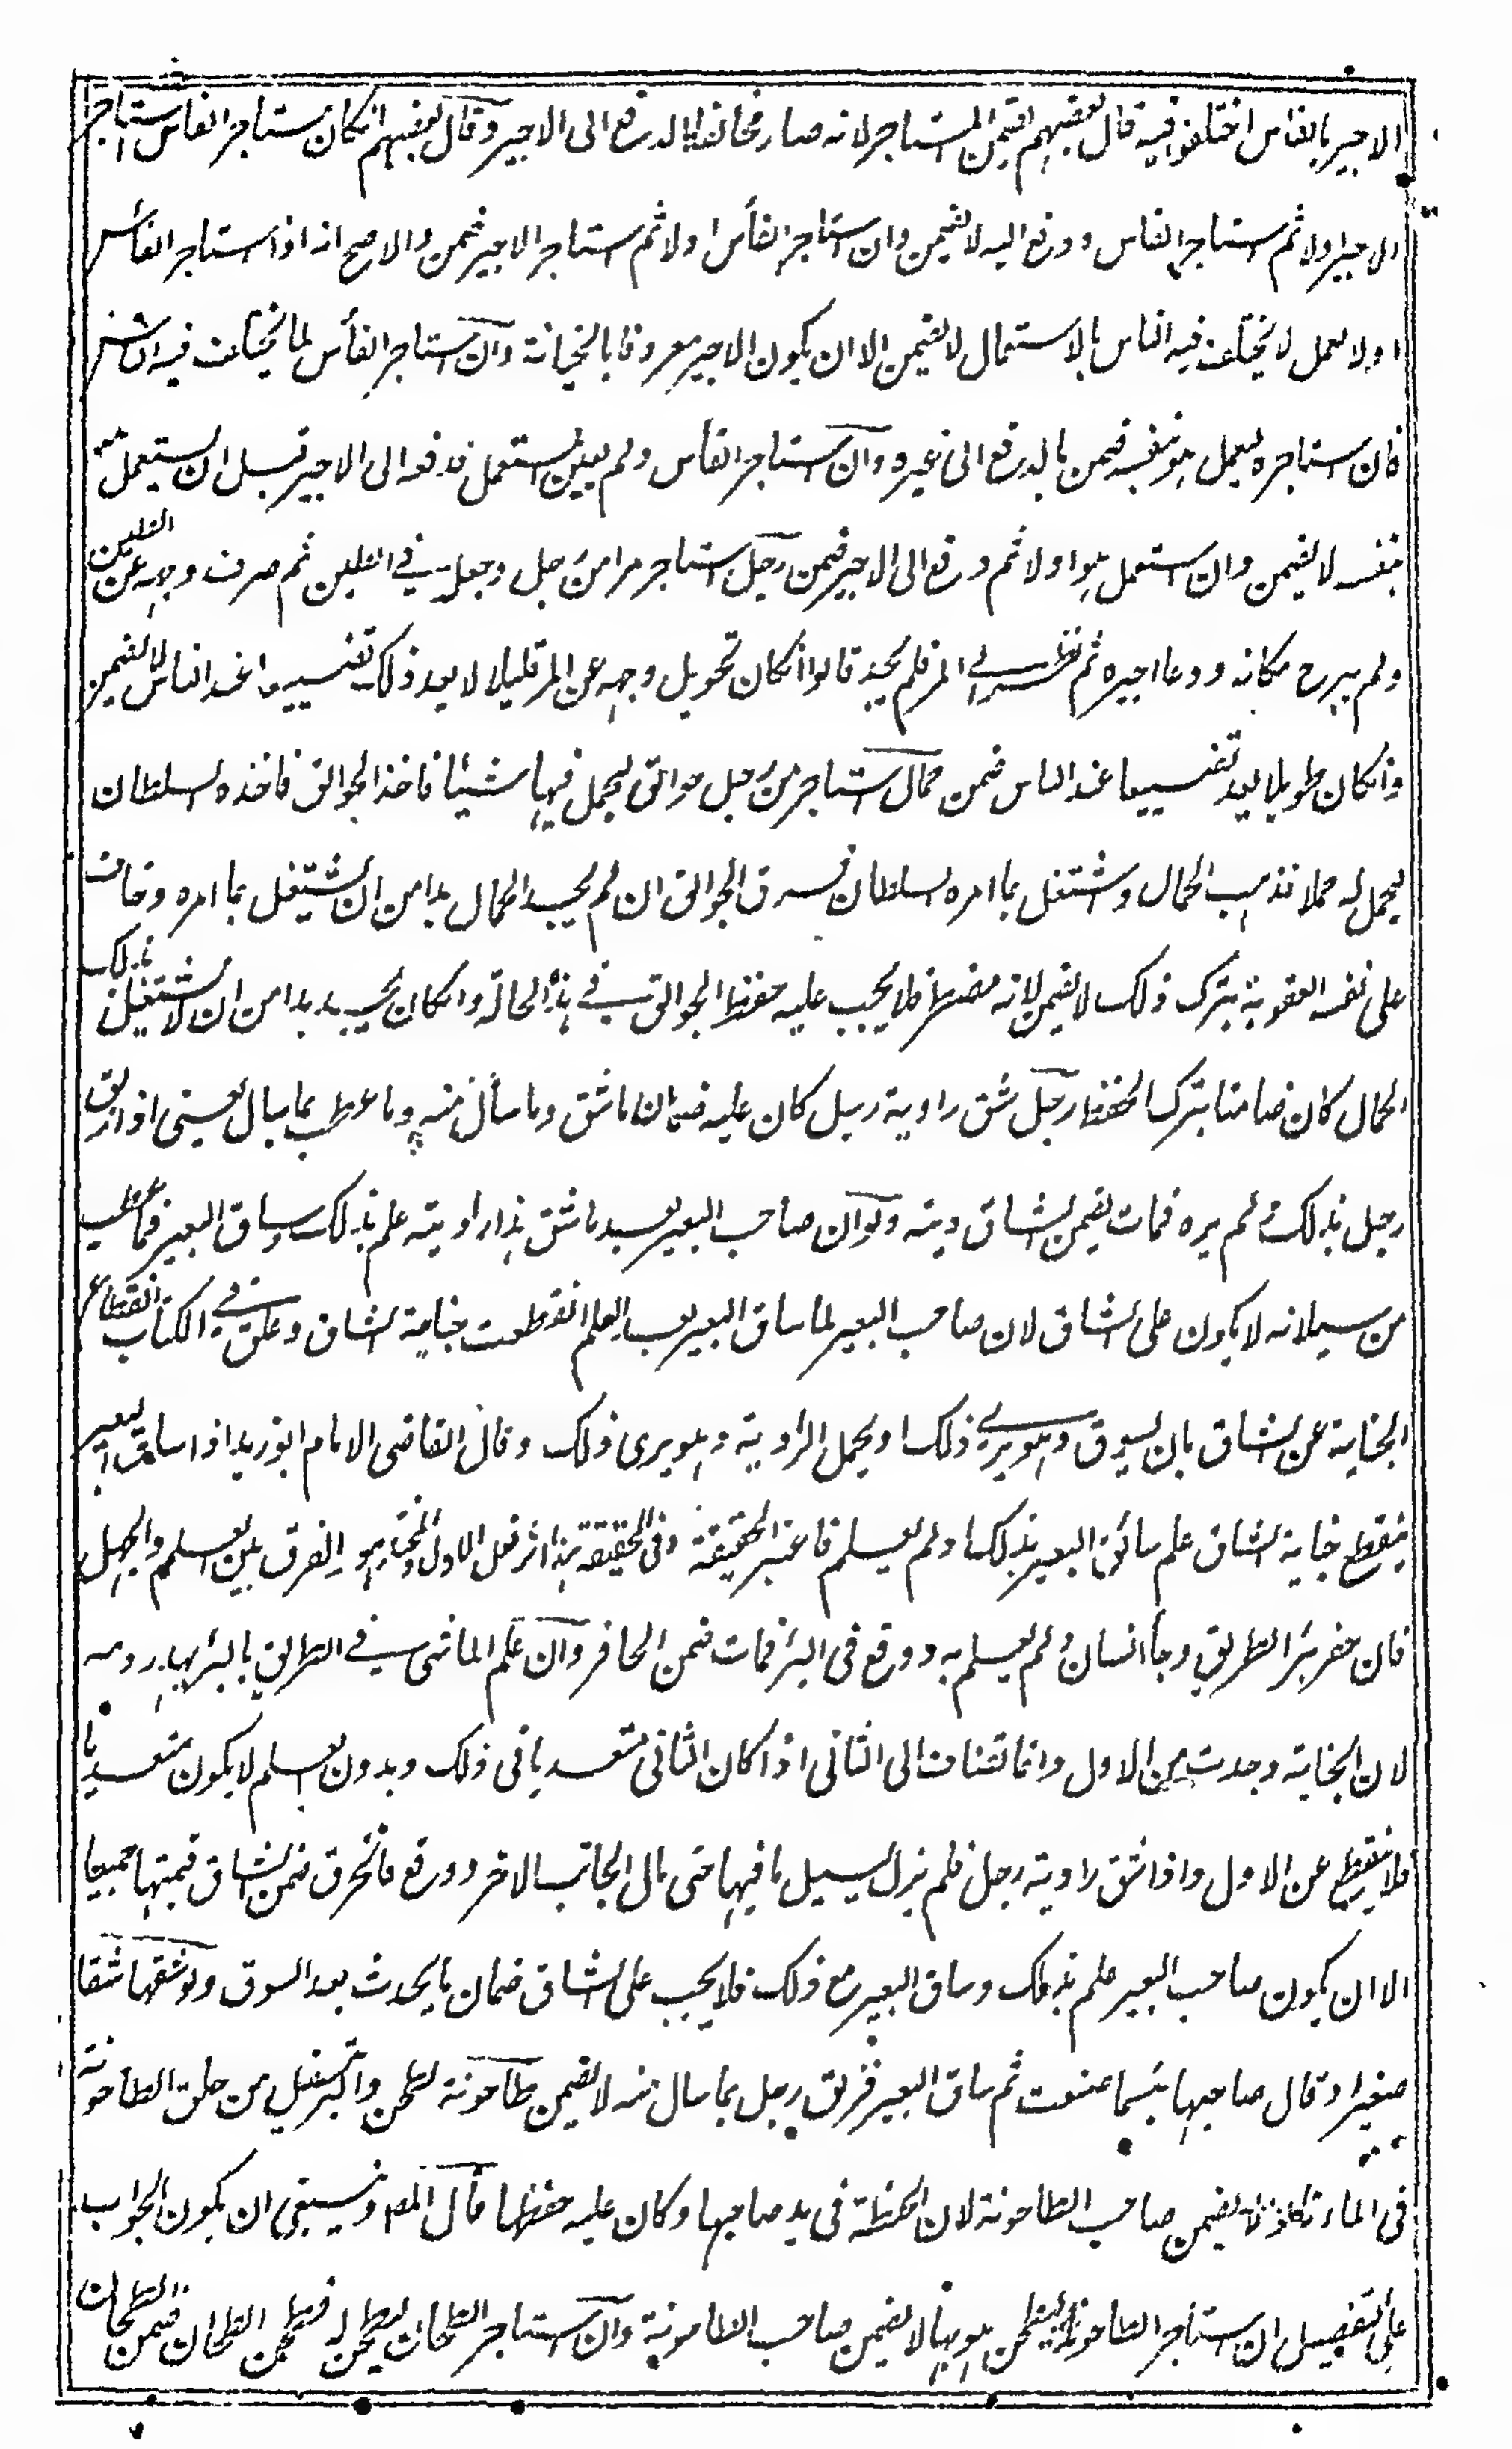 الاجير بالفاس اختلفوا فيه قال بعضهم يضمن المستاجر لانه صار مخالفا بالدفع الى الاجير وقال بعضهم انكان استاجر الفاس استاجر
الاجير اولا ثم استاجر الفاس ودفع اليه لا يضمن وان استاجر الفأس اولا ثم استاجر الاجير ضمن والاصح انه اذا استاجر الفأس
اولا لعمل لا يختلف فيه الناس بالاستعمال لا يضمن الا ان يكون الاجير معروفا بالخيانة وان استاجر الفأس لما يختلف فيه الناس
فان استاجره ليعمل هو بنفسه ضمن بالدفع الى غيره وان استاجر الفأس ولم يعين المستعمل فدفعه الى الاجير قبل ان يستعمل هو
بنفسه لا يضمن وان استعمل هو اولا ثم دفع الى الاجير ضمن رجل استاجر مرا من رجل وجعله في الطين ثم صرف وجهه عن الطين
ولم يبرح مكانه ودعا اجيره ثم نظر الى المر فلم يجد قالوا انكان تحويل وجهه عن المر قليلا لا يعد ذلك تضييعا عند الناس لا يضمن
وانكان طويلا يعد تضييعا عند الناس ضمن حمال استاجر من رجل جوالق ليحمل فيها شيئا فاخذ الجوالق فاخذه السلطان
ليحمل له حملا فذهب الحمال واشتغل بما امره السلطان فسرق الجوالق ان لم يجد الحمال بدا من ان يشتغل بما امره وخاف
على نفسه العقوبة بترك ذلك لا يضمن لانه مضطر فلا يجب عليه حفظ الجوالق في هذه الحالة وانكان يجد بدا من ان لا يشتغل بذلك
الحمال كان ضامنا بترك الحفظ رجل شق راوية رجل كان عليه ضمان ما شق وما سأل منه وما عطب بما سال يعني اذا زلق
رجل بذلك ولم يره فمات يضمن الشاق ديته ولو ان صاحب البعير بعد ما شق هذا راويته علم بذلك وساق البعير فما عطب
من سيلانه لا يكون على الشاق لان صاحب البعير لما ساق البعير بعد العلم انقطعت جناية الشاق وعلق في الكتاب انقطاع
الجناية عن الشاق بان يسوق وهو يرى ذلك او يحمل الراوية وهو يرى ذلك وقال القاضي الامام ابو زيد اذا ساق البعير
ينقطع جناية الشاق علم سائق البعير بذلك او لم يعلم فاعتبر الحقيقة وفي الحقيقة هذا اثر فعل الاول والمختار هو الفرق بين العلم والجهل
فان حفر بئرا الطريق وجأ انسان ولم يعلم به ووقع في البئر فمات ضمن الحافر وان علم الماشي في الطريق بالبئر يهدر دمه
لان الجناية وجدت من الاول وانما تضاف الى الثاني اذا كان الثاني متعديا في ذلك وبدون العلم لا يكون متعديا
فلا ينقطع عن الاول واذا شق راوية رجل فلم يزل يسيل ما فيها حتى مال الجانب الاخر ووقع فانخرق ضمن الشاق قيمتها جميعا
الا ان يكون صاحب البعير علم بذلك وساق البعير مع ذلك فلا يجب على الشاق ضمان ما يحدث بعد السوق ولو شقها شقا
صغيرا وقال صاحبها بئسما صنعت ثم ساق البعير فزلق رجل بما سال منه لا يضمن طاحونة لطحن من حلق الطاحونة
في الماء يضمن صاحب الطاحونة لان الحنطة في يد صاحبها وكان عليه حفظها قال المص وينبغي ان يكون الجواب
على التفصيل ان استأجر الطاحونة ليطحن هو بها لا يضمن صاحب الطاحونة وان استاجر الطحان ليطحن له فطحن الطحان ضمن الطحان